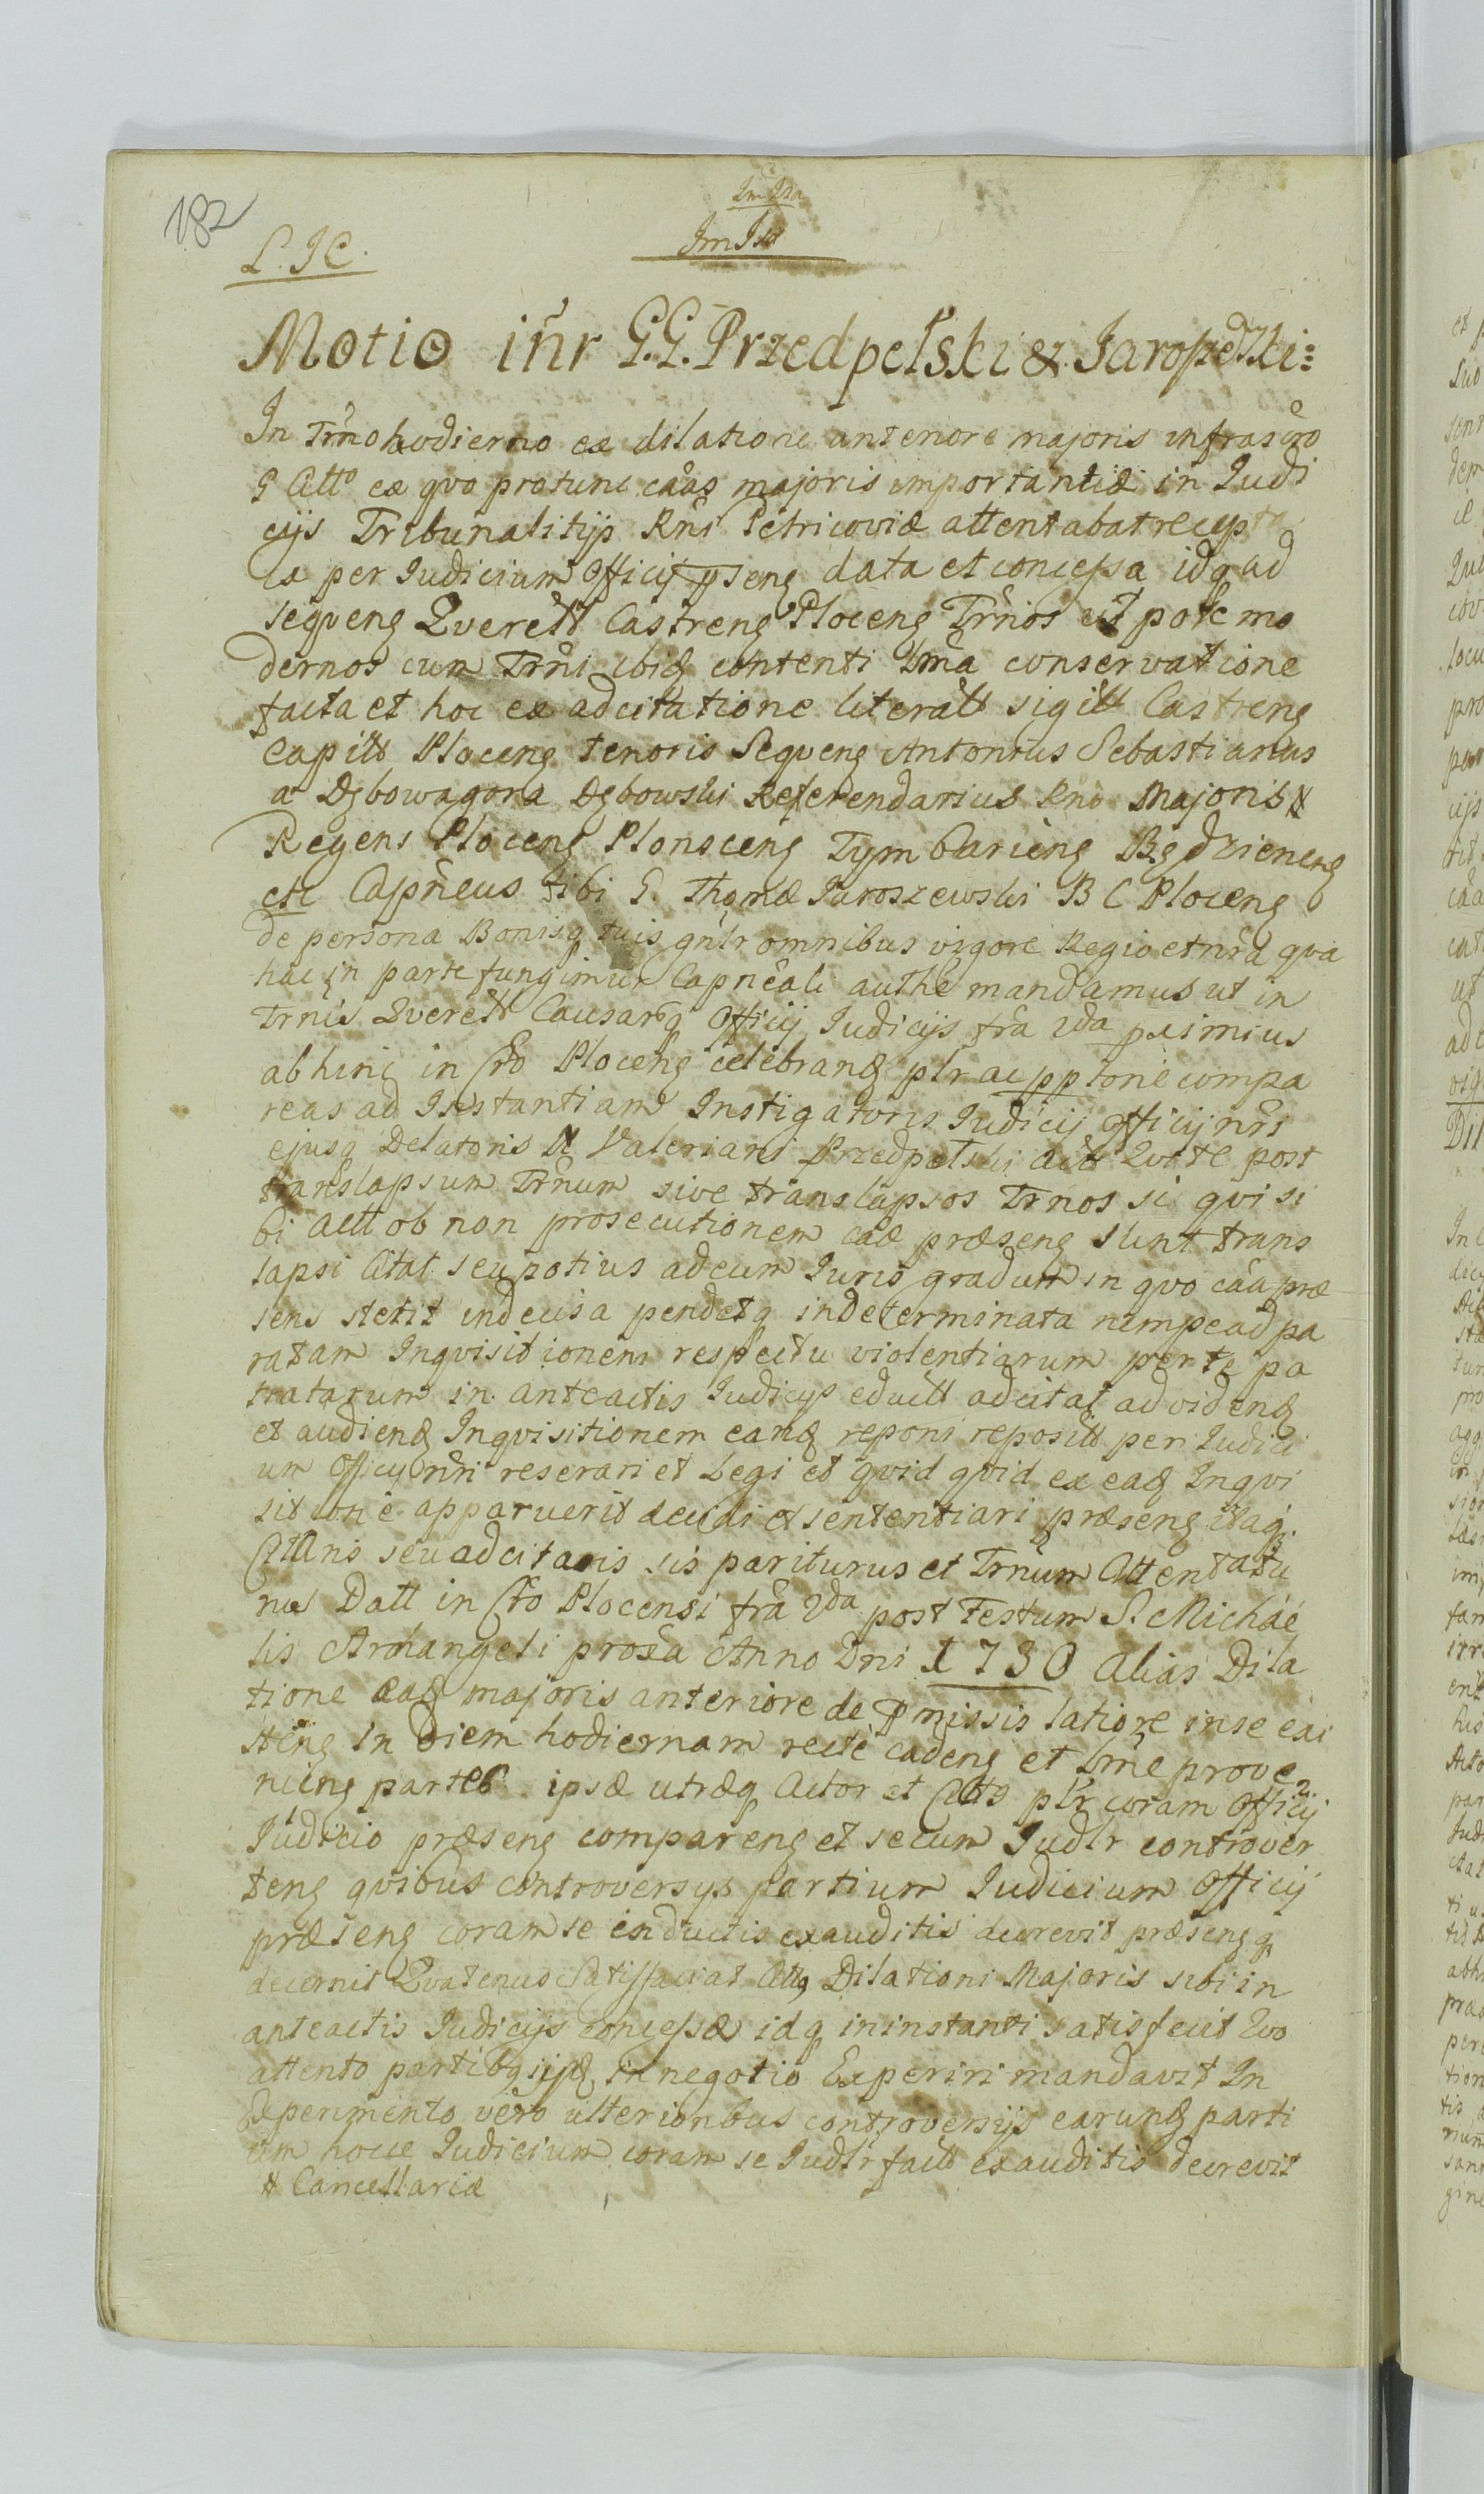 182
Im Jta
Im Jta
L. J C.
Motio inr G.G. Przedpełski & Jaroszewski:
In Trno hodierno ex dilatione anteriore majoris infrascro
G Atto ex qvo protunc caas majoris importantiæ in Judi
cijs Tribunalitijs Rni Petricoviæ attentabat recepta
ex per Judicium Officij pseng data et concessa idq ad
seqveng Qverell Castreng Ploceng Trnos ut pote mo
dernos cum Trni ibiq contenti lma conservatione
facta et hoc ex adcitatione literall sigill Castreng
Capitt Ploceng tenoris Seqveng Antonius Sebastianus
a Dębowagora Dębowski Referendarius Rni Majoris #
Regens Ploceng Plonsceng Tymbarieng Będzieneng
etc Capneus tibi G. Thomæ Jaroszewski B C Ploceng
de persona Bonisq tuis gnlr omnibus vigore Regio et nra qva
hac in parte fungimur Capneali authe mandamus ut in
Trnis Qverell Causarq Officij Judicijs fra 2da proximius
abhinc in Cro Ploceng celebrand plr ac pptorie compa
reas ad Instantiam Instigatoris Judicij Officij nri
ejusq Delatoris N Valeriani Przedpełski Act Qvi te post
translapsum Trnum sive translapsos Trnos si qvi si
bi act ob non prosecutionem caæ præseng sunt trans
lapsi Citat seu potius ad eum Juris gradum in qvo caa præ
sens stetit indecisa pendetq indeterminata nempe ad pa
ratam Inqvisitionem respectu violentiarum per te pa
tratarum in anteactis Judicijs educt adcitat ad videnq
et audienq Inqvisitionem eanq reponi reposill per Judici
um Officij nri reserari et Legi et qvid qvid ex eaq Inqvi
sitione apparuerit decidi et sententiari præseng itaq
Citans seu adcitaris sis pariturus et Trnum Attentatu
rus Datt in Cro Plocensi fra 2da post Festum S. Michaé
lis Archangeli proxa Anno Dni 1730 Alias Dila
tione eaq majoris anteriore de pmissis latiore in se exi
steng in diem hodiernam recte cadeng et lme prove
nieng partes ipsæ utræq Actor et Citts plr coram Officij
Judicio præseng compareng et secum Judlr controver
teng qvibus controversys partium Judicium Officij
præseng coram se inductis exauditis decrevit præsengq
decernit Qvatenus Satisfaciat Citts Dilationi Majoris sibi in
anteactis Judicijs concessæ idq in instanti satisfecit Qvo
attento partibq ijsq in negotio Experiri mandavit In
Experimento vero ulterioribus controversijs earunq parti
um hocce Judicium coram se Judlr fact exauditis decrevit
# Cancellariæ